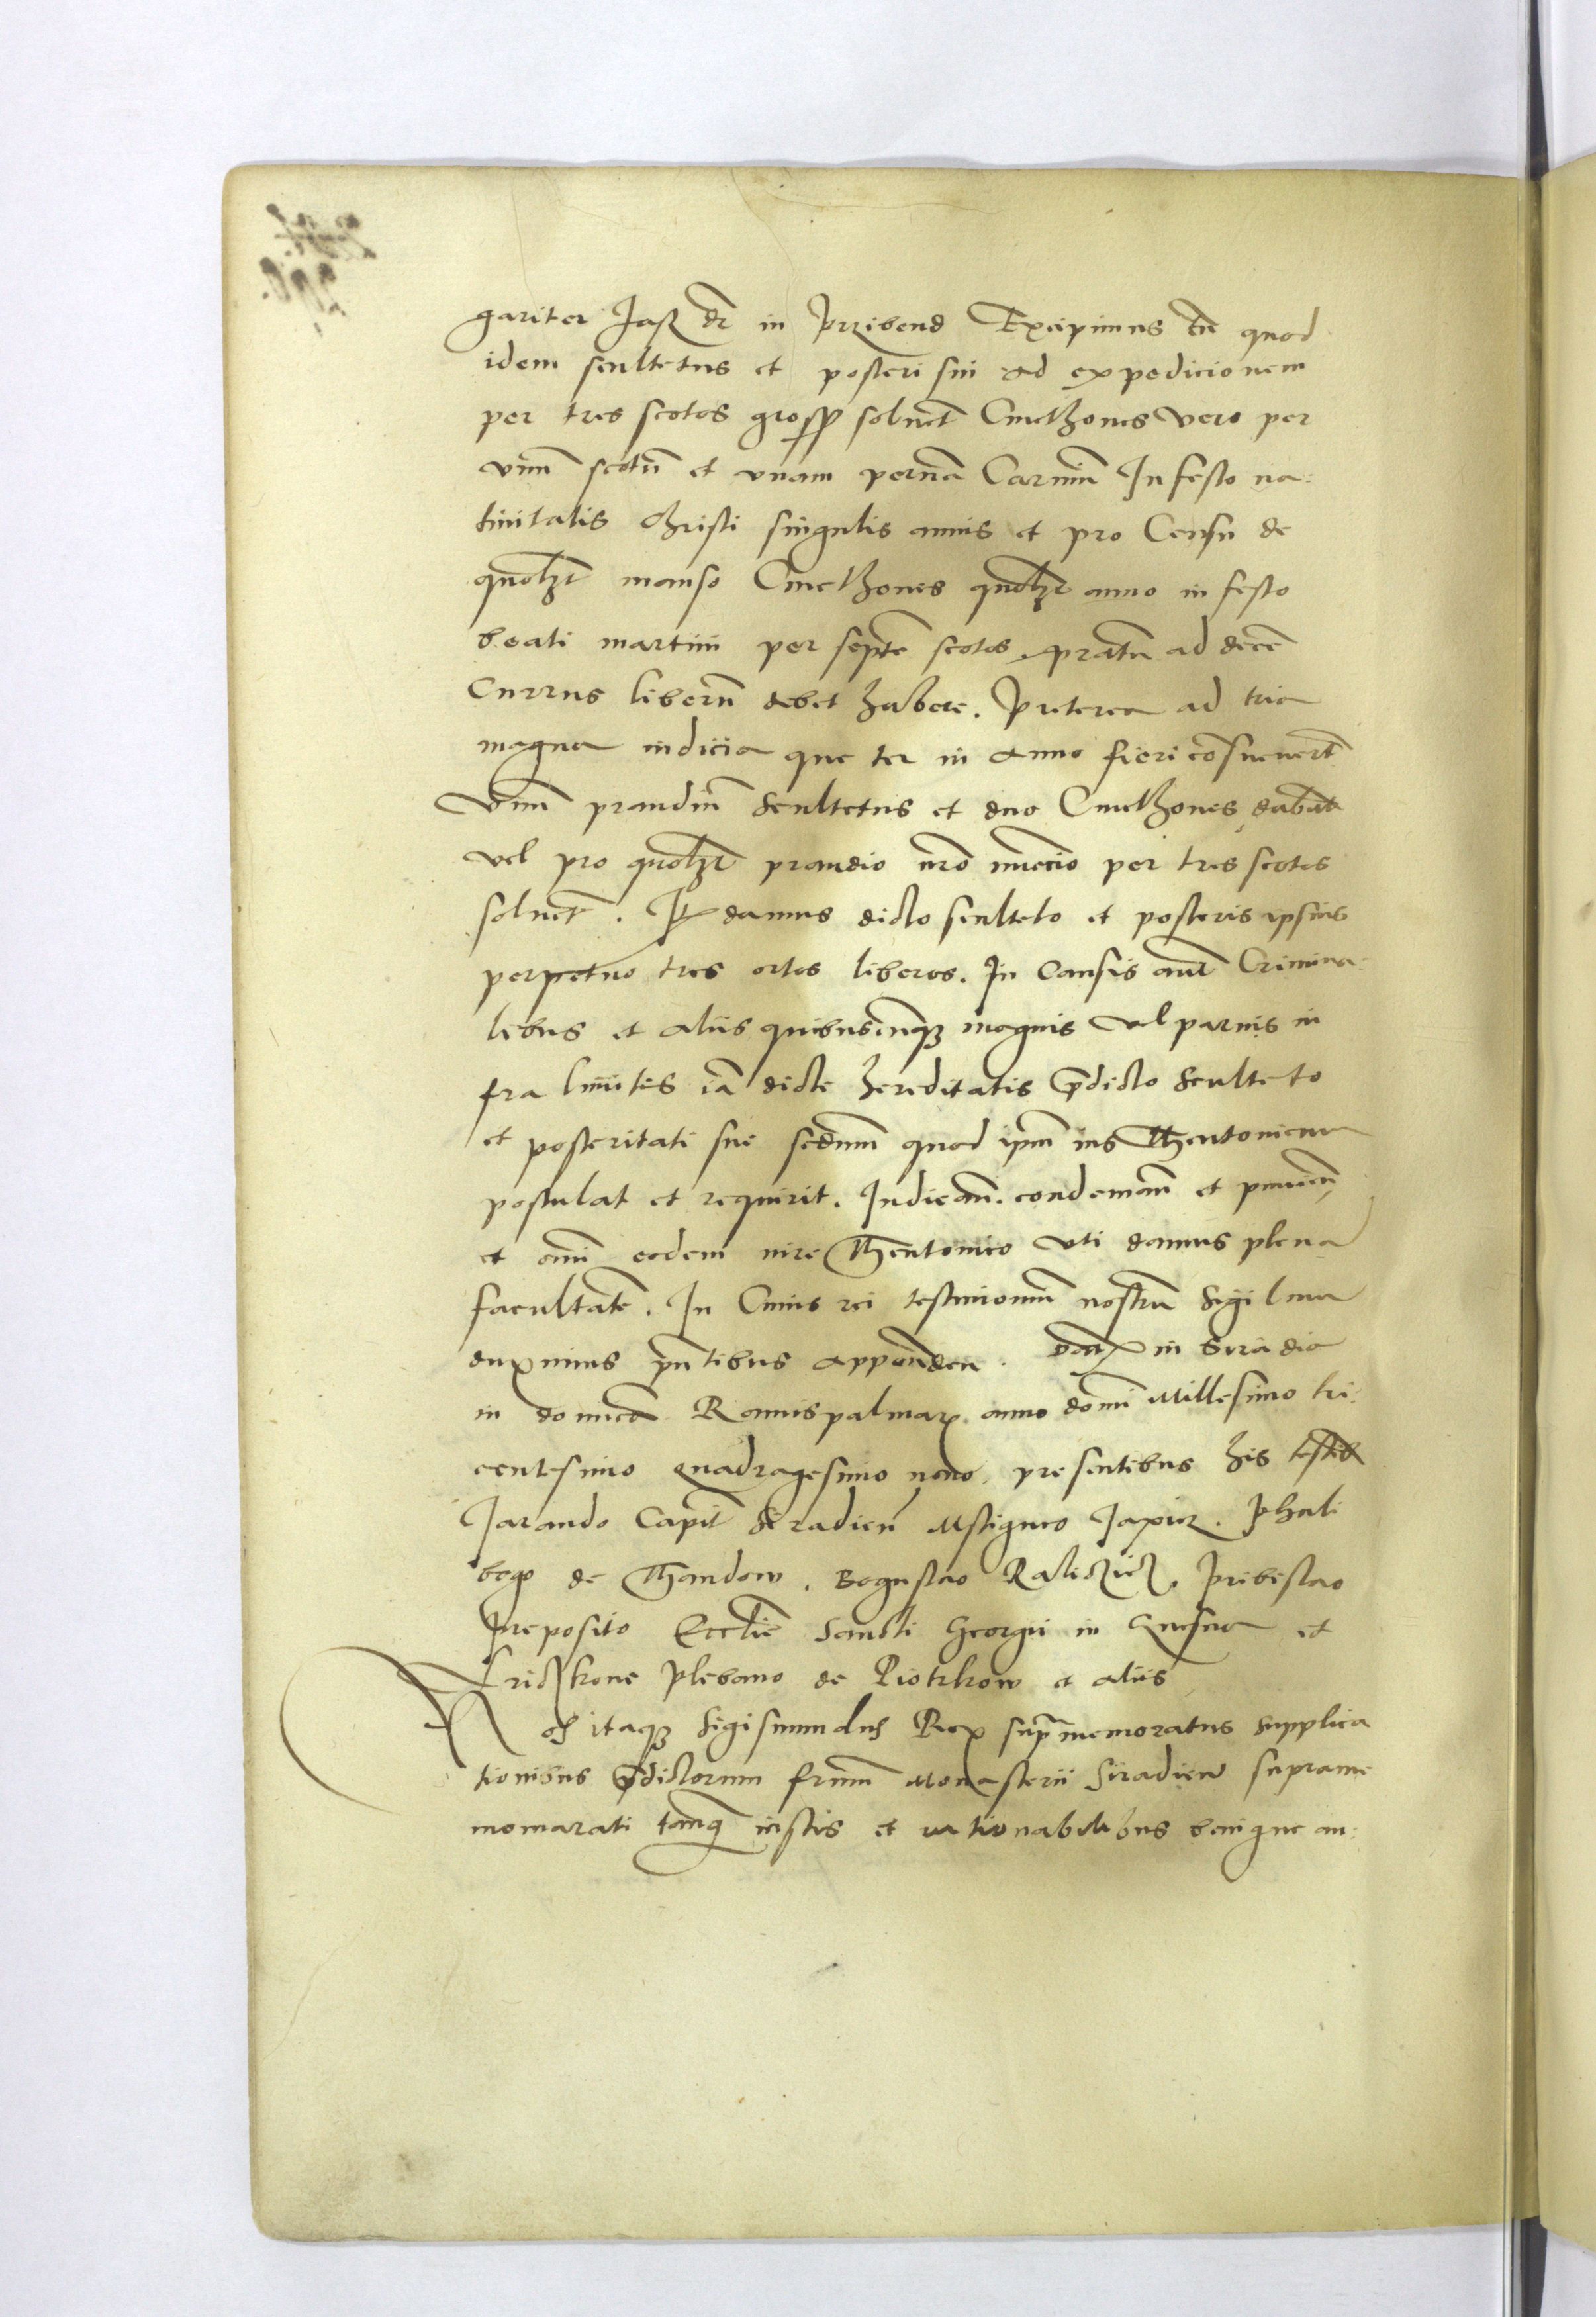 gariter Jaz dr in Przibend Excipimus tn quod
idem scultetus et posteri sui ad expedicionem
per tres scotos gross soluet Cmethones vero per
vnu scotu et vnam perna Carniu In festo na:
tiuitatis Christi singulis annis et pro Censu de
quolzt manso Cmethones quolzt anno in festo
beati martini per septe scotos. pratu ad dece
Currus liberu debet habere. Preterea ad tria
magna iudicia que ter in anno fieri cosueuert
Vnu prandiu Scultetus et duo Cmethones dabut
vel pro quolzt prandio nro nuncio per tres scotos
soluet. It damus dicto sculteto et posteris ipsius
perpetuo tres ortos liberos. In Causis aut Crimina:
libus et aliis quibuscunqz magnis vel paruis in
fra limites ia dicte hereditatis pdicto Sculteto
et posteritati sue sedum quod ipm ius Theutonicum
postulat et requirit. Iudican. condemnan et puniend
et omi eodem iure Theutonico vti damus plena
facultate. In Cuius rei testimoniu nostru Sigilum
duximus pntibus appenden. Dat in Siradia
in domica Ramispalmar. anno domi Millesimo tri:
centesimo quadragesimo nono. presentibus his testib
Jarando Capit Siradien Mstigneo Jaxicz. Phali
bogo de Thandow. Boguslao Kaliczicz. Pribislao
Preposito Ecclie Sancti Georgii in Gnesna et
Friczkone Plebano de Piotrkow et aliis
Nos itaqz Sigismundus Rex supramemoratus supplica
tionibus pdictorum frum Monasterii Siradien suprame
momarati tanq iustis et rationabilibus benigne an: